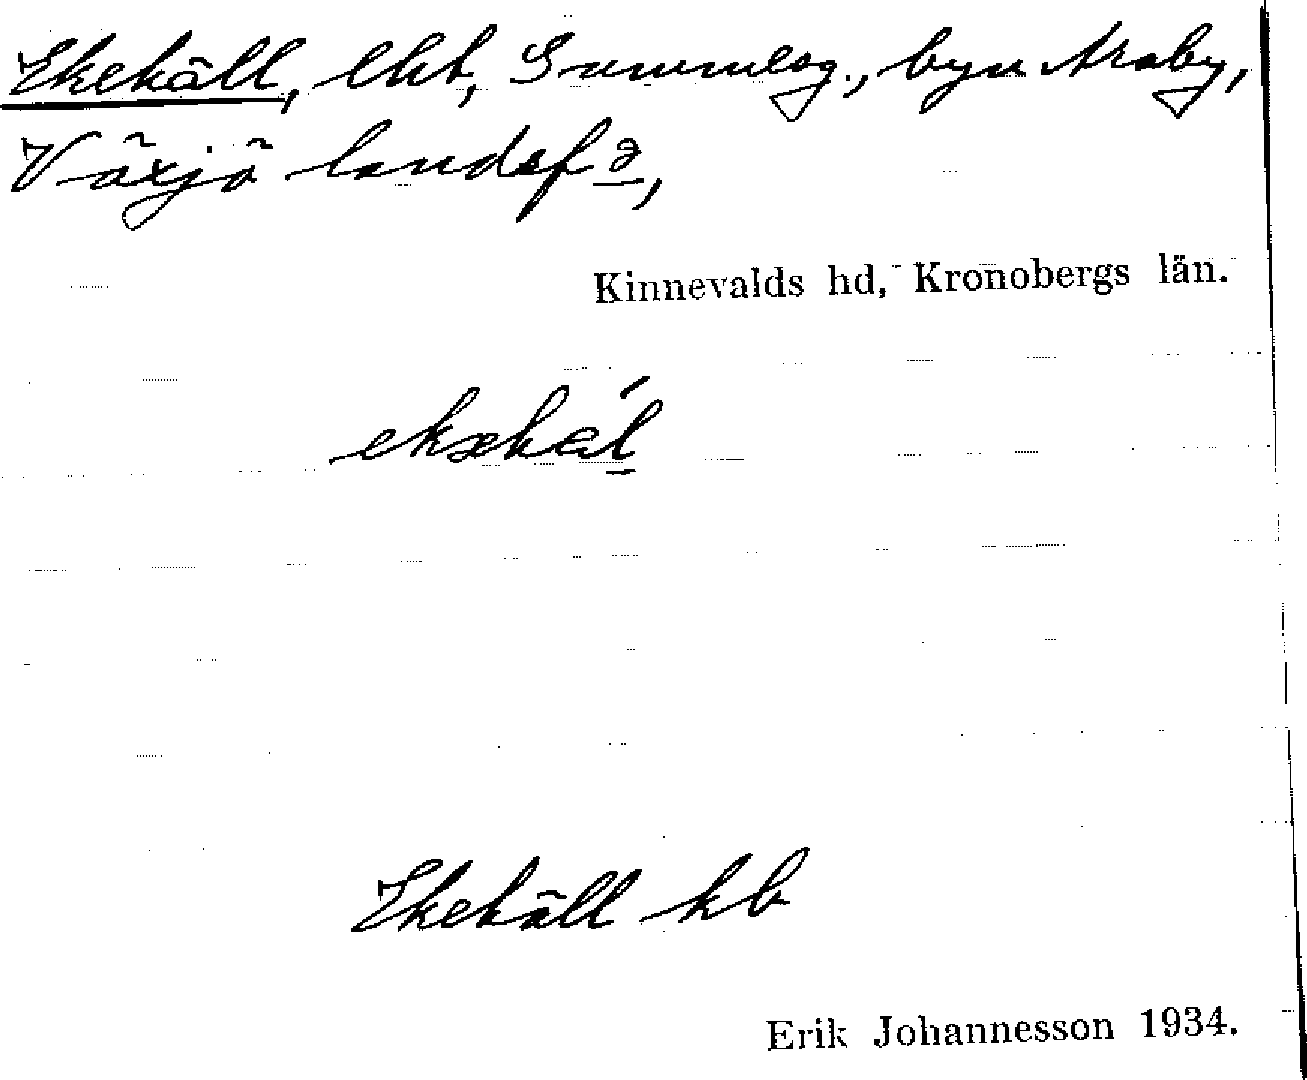 Ekekäll, lht, Sammelag., byn Araby,
Växjö landsf a,
Kinnevalds hd, Kronobergs län.
Ekekäll hb
Erik Johannesson 1934.